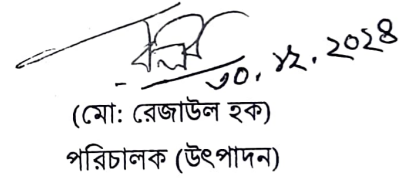 ৩০.১২.২০২৪
(মো: রেজাউল হক)
পরিচালক (উৎপাদন)